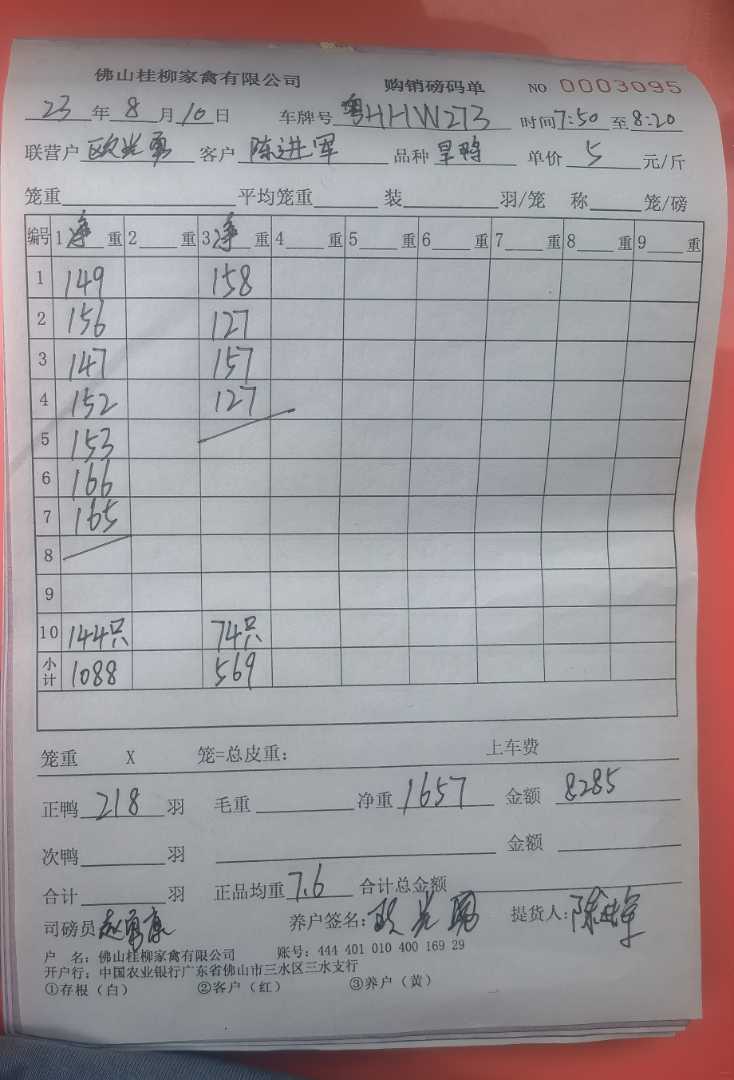 佛山桂柳家禽有限公司 购销磅码单 NO 0003095
23年8月10日 车牌号 粤HHW273 时间7:50至8:20
联营户 欧光勇 客户 陈进军 品种 旱鸭 单价 5 元/斤
笼重 平均笼重 装 羽/笼 称 笼/磅
编号 1净重 2 重 3净重 4 重 5 重 6 重 7 重 8 重 9 重
1 149 158
2 156 127
3 147 157
4 152 127
5 153
6 166
7 165
8
9
10 144只 74只
小计 1088 569
笼重 X 笼=总皮重: 上车费
正鸭 218 羽 毛重 净重 1657 金额 8285
次鸭 羽 金额
合计 羽 正品均重 7.6 合计总金额
司磅员 养户签名: 欧光勇 提货人: 陈进军
户 名: 佛山桂柳家禽有限公司 账号: 444 401 010 400 169 29
开户行: 中国农业银行广东省佛山市三水区三水支行
①存根(白) ②客户(红) ③养户(黄)